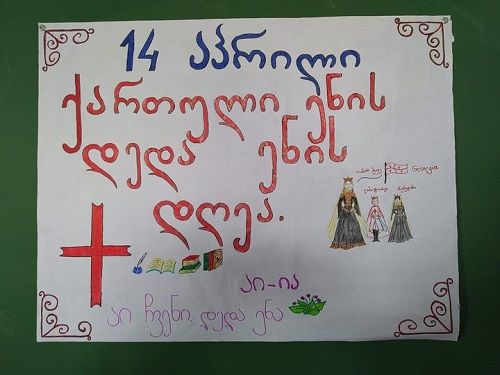 14 აპრილი
ქართული ენის
დედა ენის
დღეა.
Georgia
აი-ია
აი ჩვენი დედა ენა